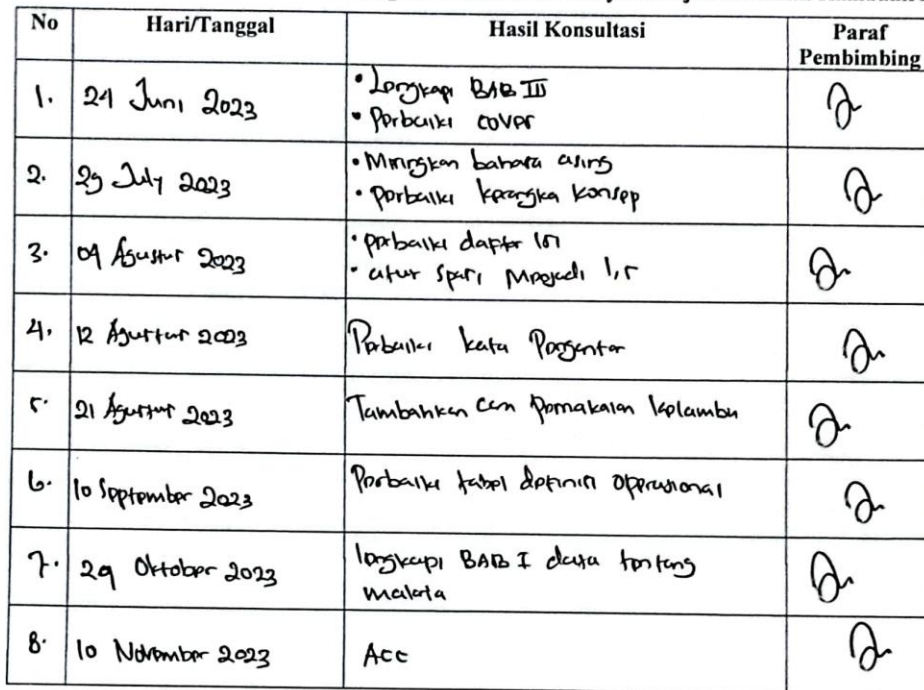 No Hari/Tanggal Hasil Konsultasi Paraf Pembimbing
1. 24 Juni 2023 • Lengkapi BAB III
• Perbaiki cover
2. 29 July 2023 • Miringkan bahasa asing
• Perbaiki kerangka konsep
3. 04 Agustus 2023 • perbaiki daftar isi
• atur spasi menjadi 1,5
4. 12 Agustus 2023 Perbaiki kata Pengantar
5. 21 Agustus 2023 Tambahkan cara Pemakaian kelambu
6. 10 September 2023 Perbaiki tabel definisi operasional
7. 29 Oktober 2023 lengkapi BAB I data tentang
malaria
8. 10 November 2023 Acc